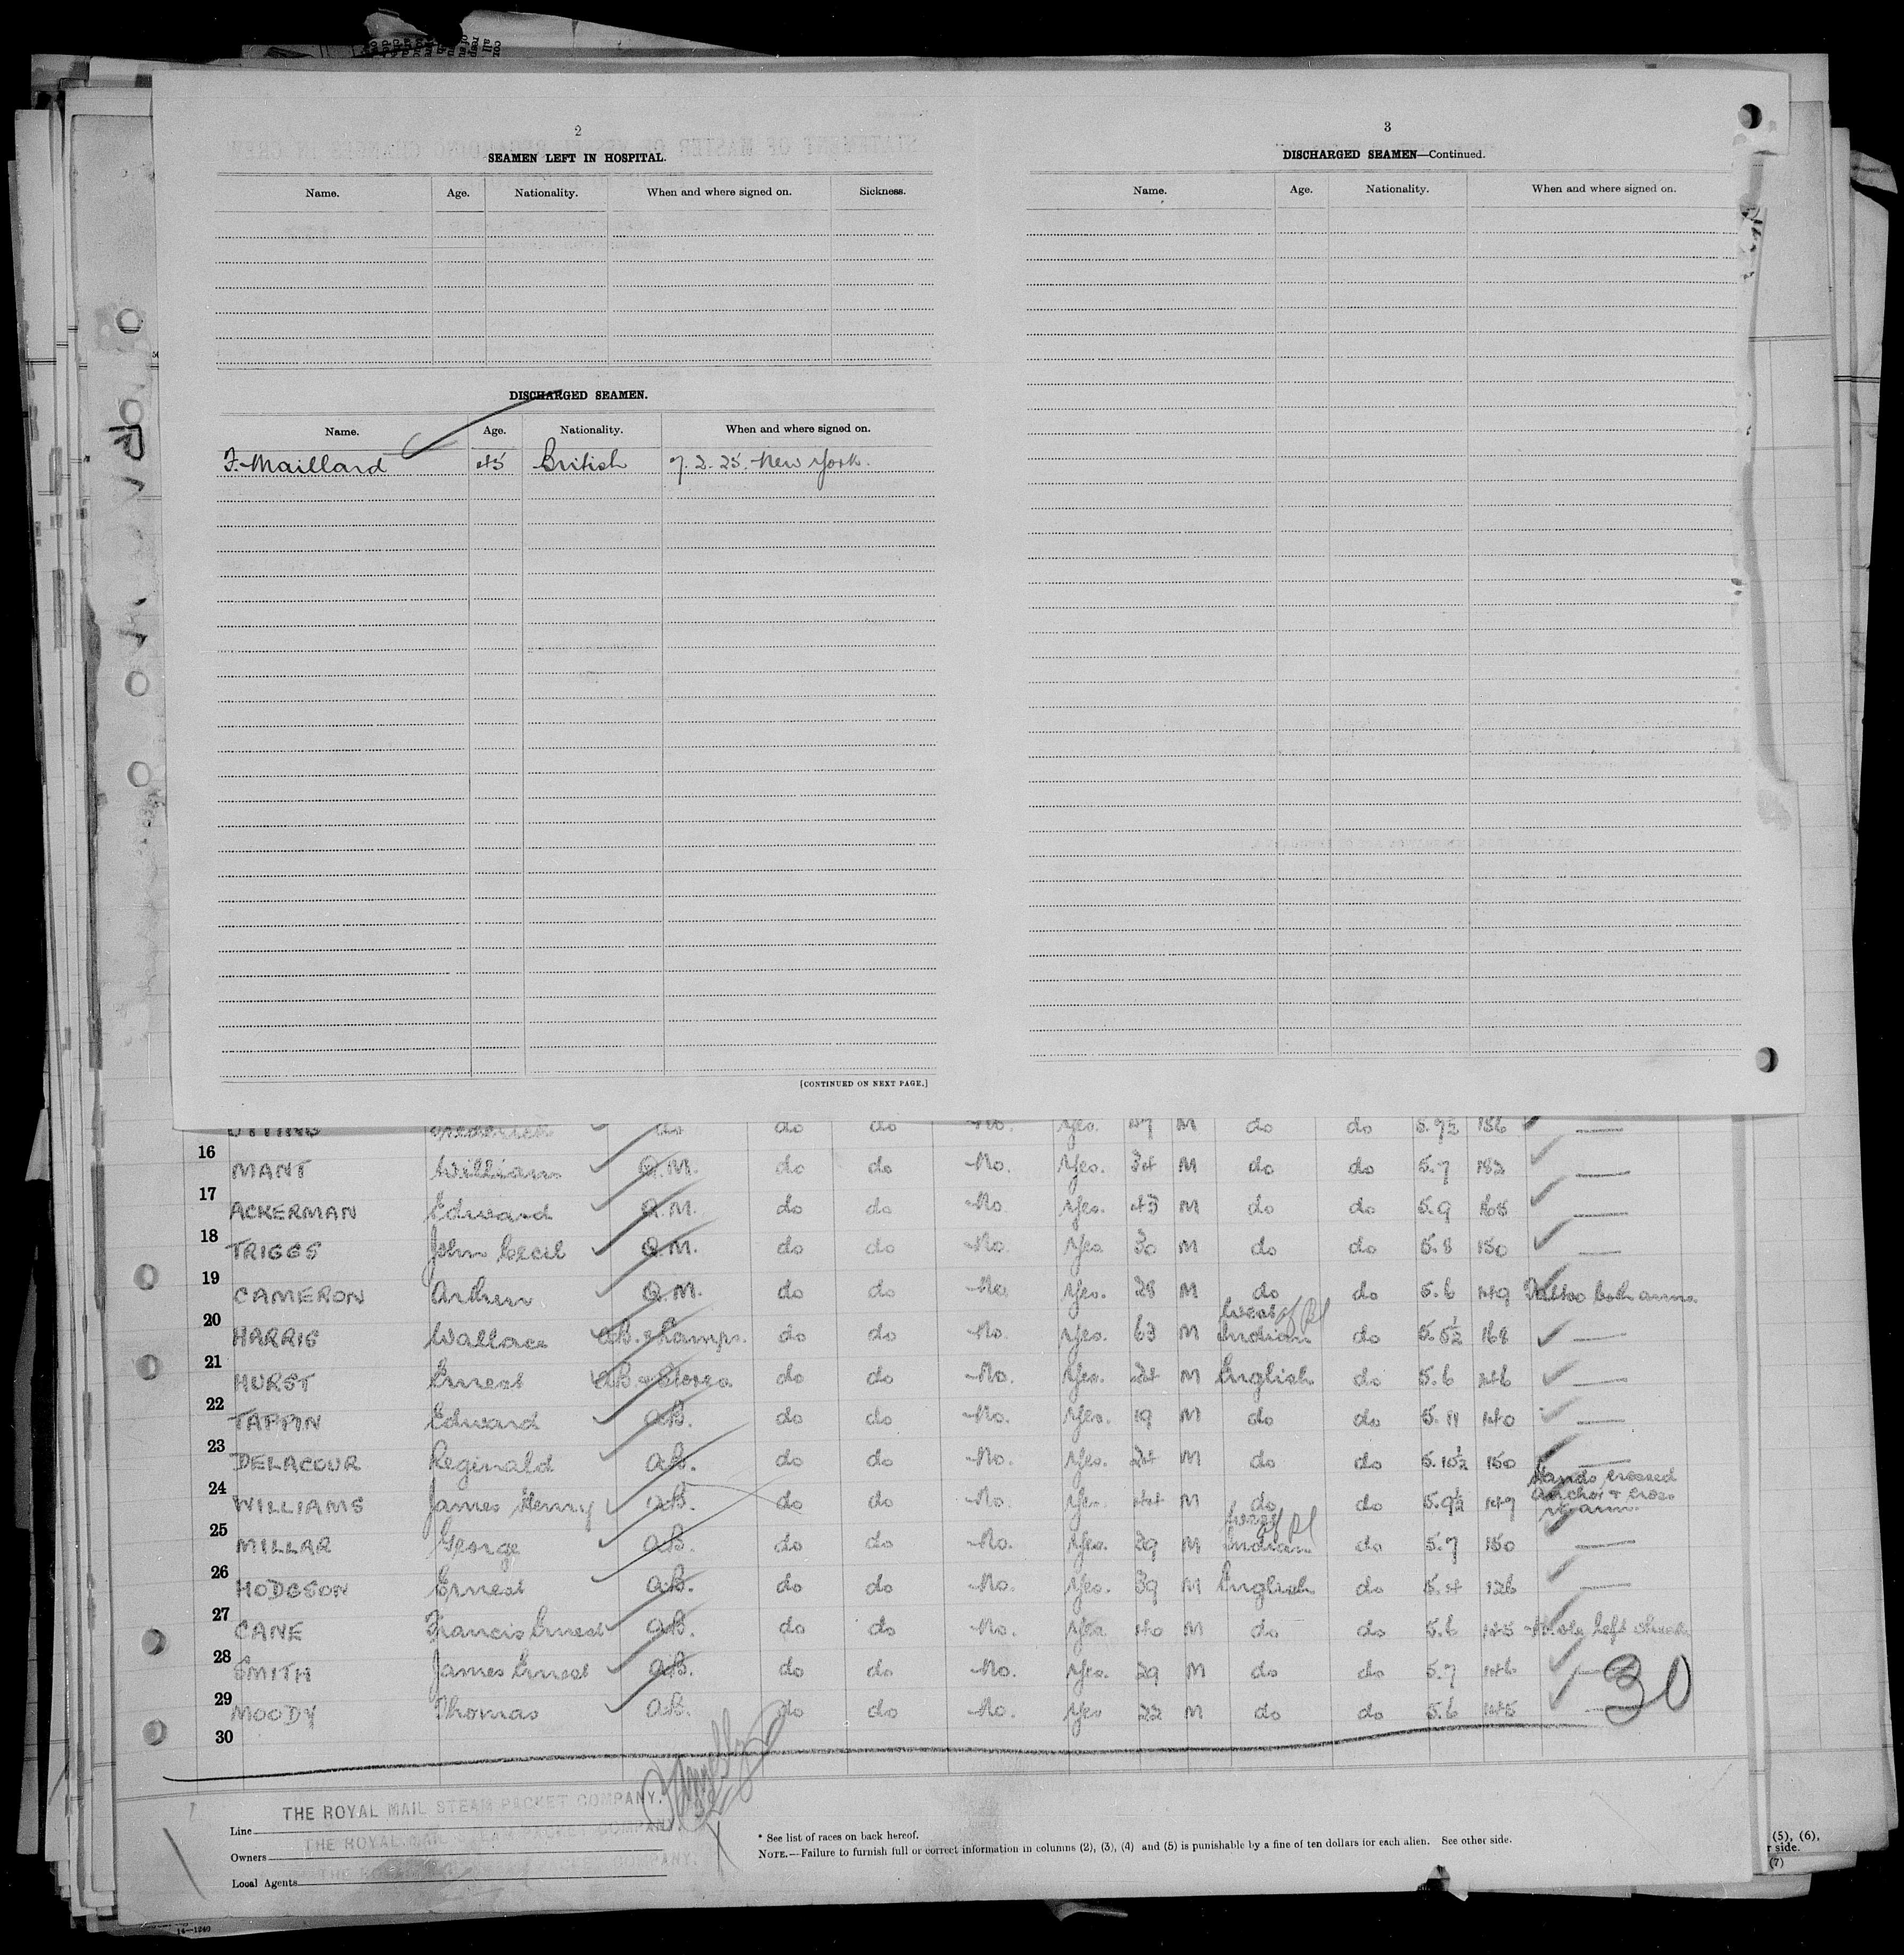 2
SEAMEN LEFT IN HOSPITAL.
Name. Age. Nationality. When and where signed on. Sickness.
DISCHARGED SEAMEN.
Name. Age. Nationality. When and where signed on.
F. Maillard 45 British 7.2.25. New York.
[CONTINUED ON NEXT PAGE.]
3
DISCHARGED SEAMEN—Continued.
Name. Age. Nationality. When and where signed on.
Frederick do do do No. Yes. 47 M do do 5.9½ 186 —
16 MANT William Q.M. do do No. Yes. 34 M do do 5.7 182 —
17 ACKERMAN Edward Q.M. do do No. Yes. 43 M do do 5.9 168 —
18 TRIGGS John Cecil Q.M. do do No. Yes 30 M do do 5.8 150 —
19 CAMERON Arthur Q.M. do do No. Yes. 28 M do do 5.6 149 Tattoo both arms
20 HARRIS Wallace AB. & Lamps. do do No. Yes. 63 M West Indian do 5.5½ 168 —
21 HURST Ernest AB & Stores do do No. Yes. 24 M English do 5.6 146 —
22 TAPPIN Edward AB. do do No. Yes. 19 M do do 5.11 140 —
23 DELACOUR Reginald AB. do do No. Yes. 24 M do do 5.10½ 150 —
24 WILLIAMS James Henry AB. do do No. Yes. 44 M do do 5.9½ 147 Hands crossed
Anchor & Cross
rt arm.
25 MILLAR George AB. do do No. Yes. 29 M West Indian do 5.7 150 —
26 HODGSON Ernest AB. do do No. Yes. 39 M English do 5.4 126 —
27 CANE Francis Ernest AB. do do No. Yes 40 M do do 5.6 145 Mole left cheek
28 SMITH James Ernest AB. do do No. Yes. 29 M do do 5.7 146 —
29 MOODY Thomas AB. do do No. Yes 22 M do do 5.6 145 —
30
30
THE ROYAL MAIL STEAM PACKET COMPANY.
Line
THE ROYAL MAIL STEAM PACKET COMPANY.
Owners
THE ROYAL MAIL STEAM PACKET COMPANY.
Local Agents
* See list of races on back hereof.
NOTE.—Failure to furnish full or correct information in columns (2), (3), (4) and (5) is punishable by a fine of ten dollars for each alien. See other side.
(5), (6),
r side.
(7)
14—1240